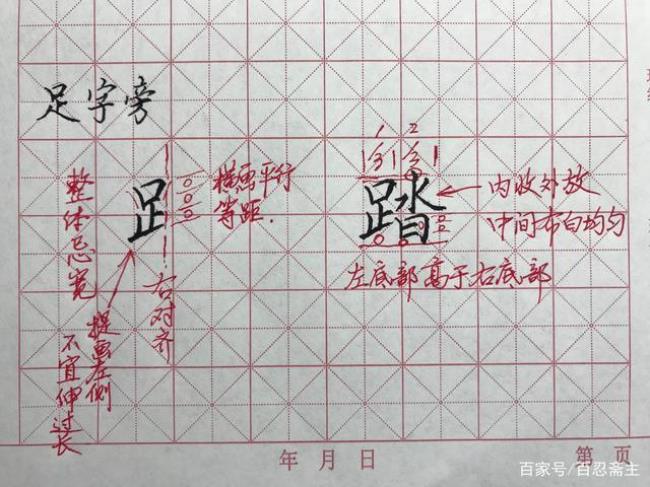 足字旁
整体忌宽
𧾷
横画平行
等距.
右对齐
提画左侧
不宜伸过长
1 2
1 3 1 3 1
踏
内收外放
中间布白均匀
左底部高于右底部
年 月 日
第 页
百家号/百忍斋主